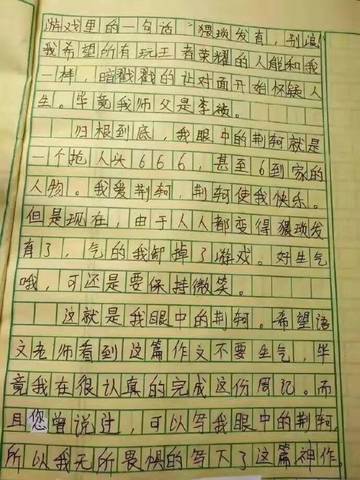 游戏里的一句话"猥琐发育,别浪
我希望所有玩王者荣耀的人能和我
一样,暗戳戳的让对面开始怀疑人
生。毕竟我师父是李被。
归根到底,我眼中的荆轲就是
一个抢人头666,甚至6到家的
人物。我爱荆轲,荆轲使我快乐。
但是现在,由于人人都变得猥琐发
育了,气的我卸掉了游戏。好生气
哦,可还是要保持微笑。
这就是我眼中的荆轲。希望语
文老师看到这篇作文不要生气,毕
竟我在很认真的完成这份周记。而
且您曾说过,可以写我眼中的荆轲,
所以我无所畏惧的写下了这篇神作,